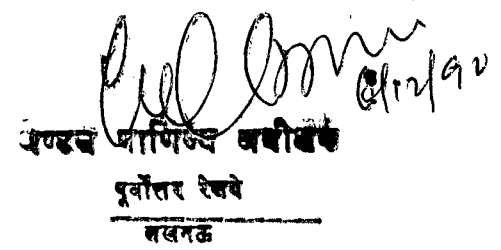 6/12/90
मण्डल वाणिज्य अधीक्षक
पूर्वोत्तर रेलवे
लखनऊ